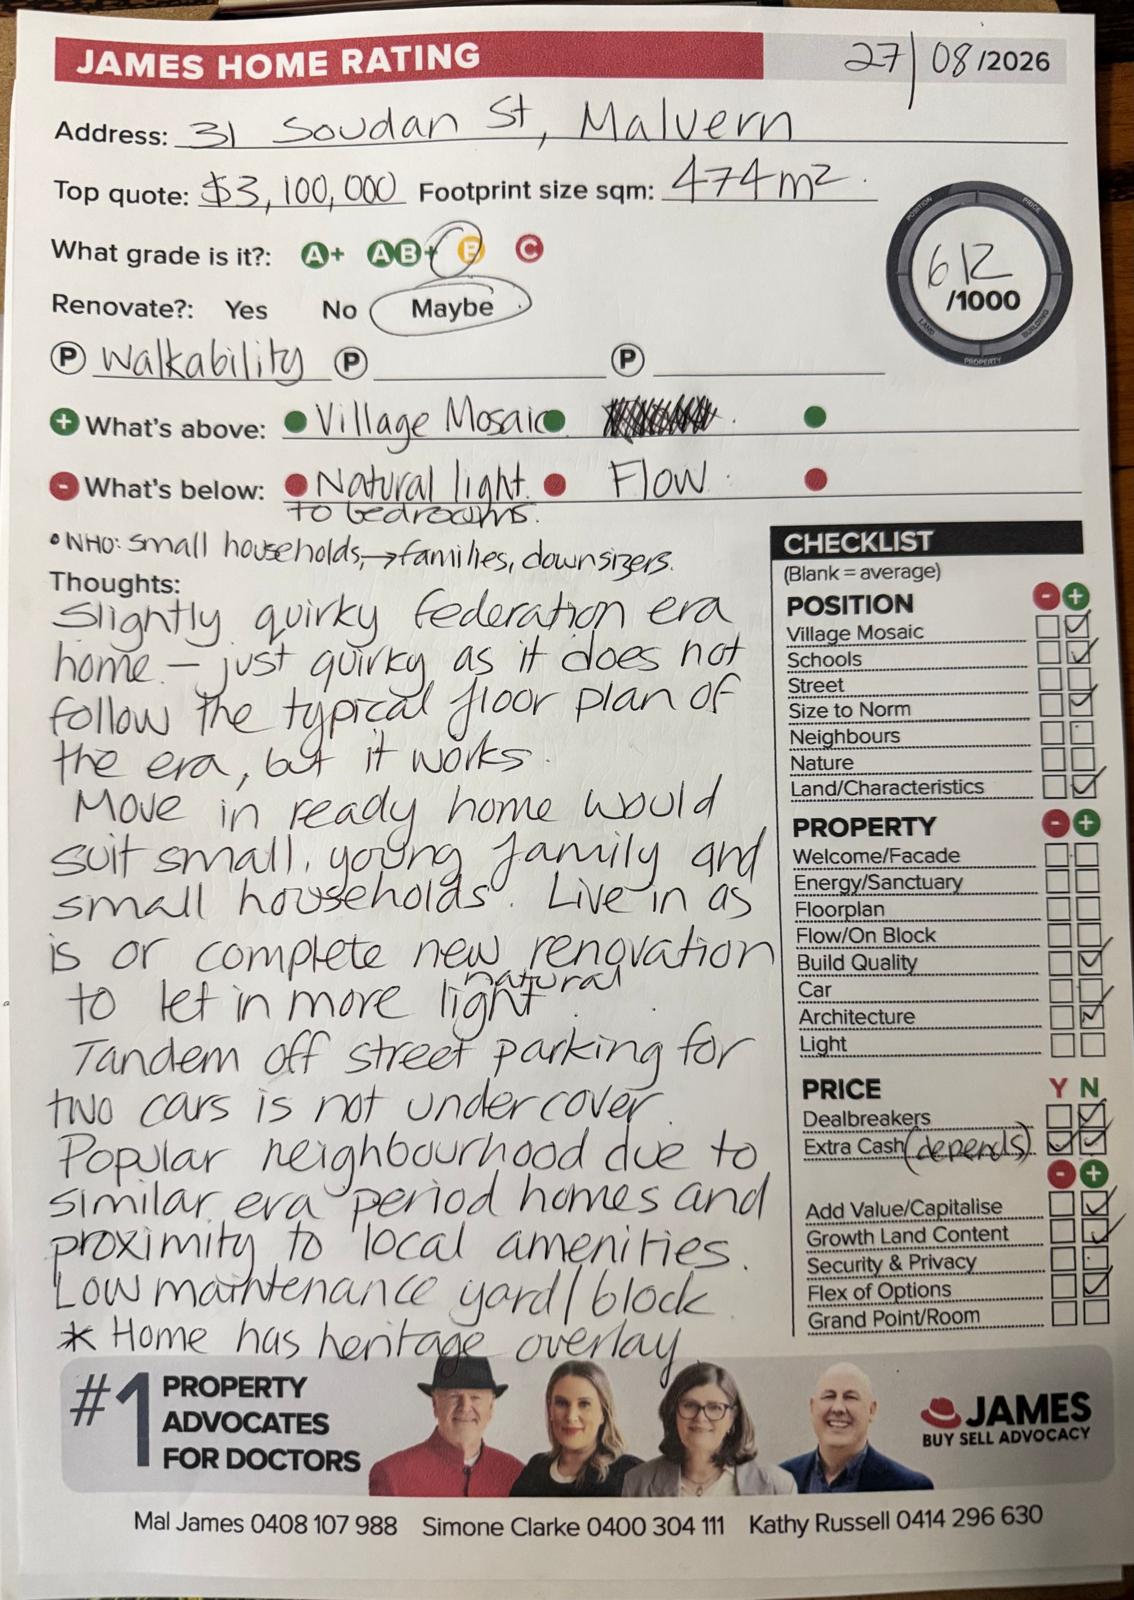 JAMES HOME RATING
27/08/2026
Address: 31 Soudan St, Malvern
Top quote: $3,100,000 Footprint size sqm: 474m2.
What grade is it?: A+ A B+ B C
612
/1000
POSITION PRICE BUILDING PROPERTY LAND
Renovate?: Yes No Maybe
P Walkability P P
+ What's above: Village Mosaic
- What's below: Natural light Flow
to bedrooms.
• NHO: small households, → families, downsizers.
Thoughts:
Slightly quirky federation era
home – just quirky as it does not
follow the typical floor plan of
the era, but it works.
Move in ready home would
suit small, young family and
small households. Live in as
is or complete new renovation
to let in more natural light.
Tandem off street parking for
two cars is not undercover.
Popular neighbourhood due to
similar era period homes and
proximity to local amenities.
Low maintenance yard/block.
* Home has heritage overlay
CHECKLIST
(Blank = average)
POSITION - +
Village Mosaic
Schools
Street
Size to Norm
Neighbours
Nature
Land/Characteristics
PROPERTY - +
Welcome/Facade
Energy/Sanctuary
Floorplan
Flow/On Block
Build Quality
Car
Architecture
Light
PRICE Y N
Dealbreakers
Extra Cash (depends)
- +
Add Value/Capitalise
Growth Land Content
Security & Privacy
Flex of Options
Grand Point/Room
#1 PROPERTY
ADVOCATES
FOR DOCTORS
JAMES
BUY SELL ADVOCACY
Mal James 0408 107 988 Simone Clarke 0400 304 111 Kathy Russell 0414 296 630